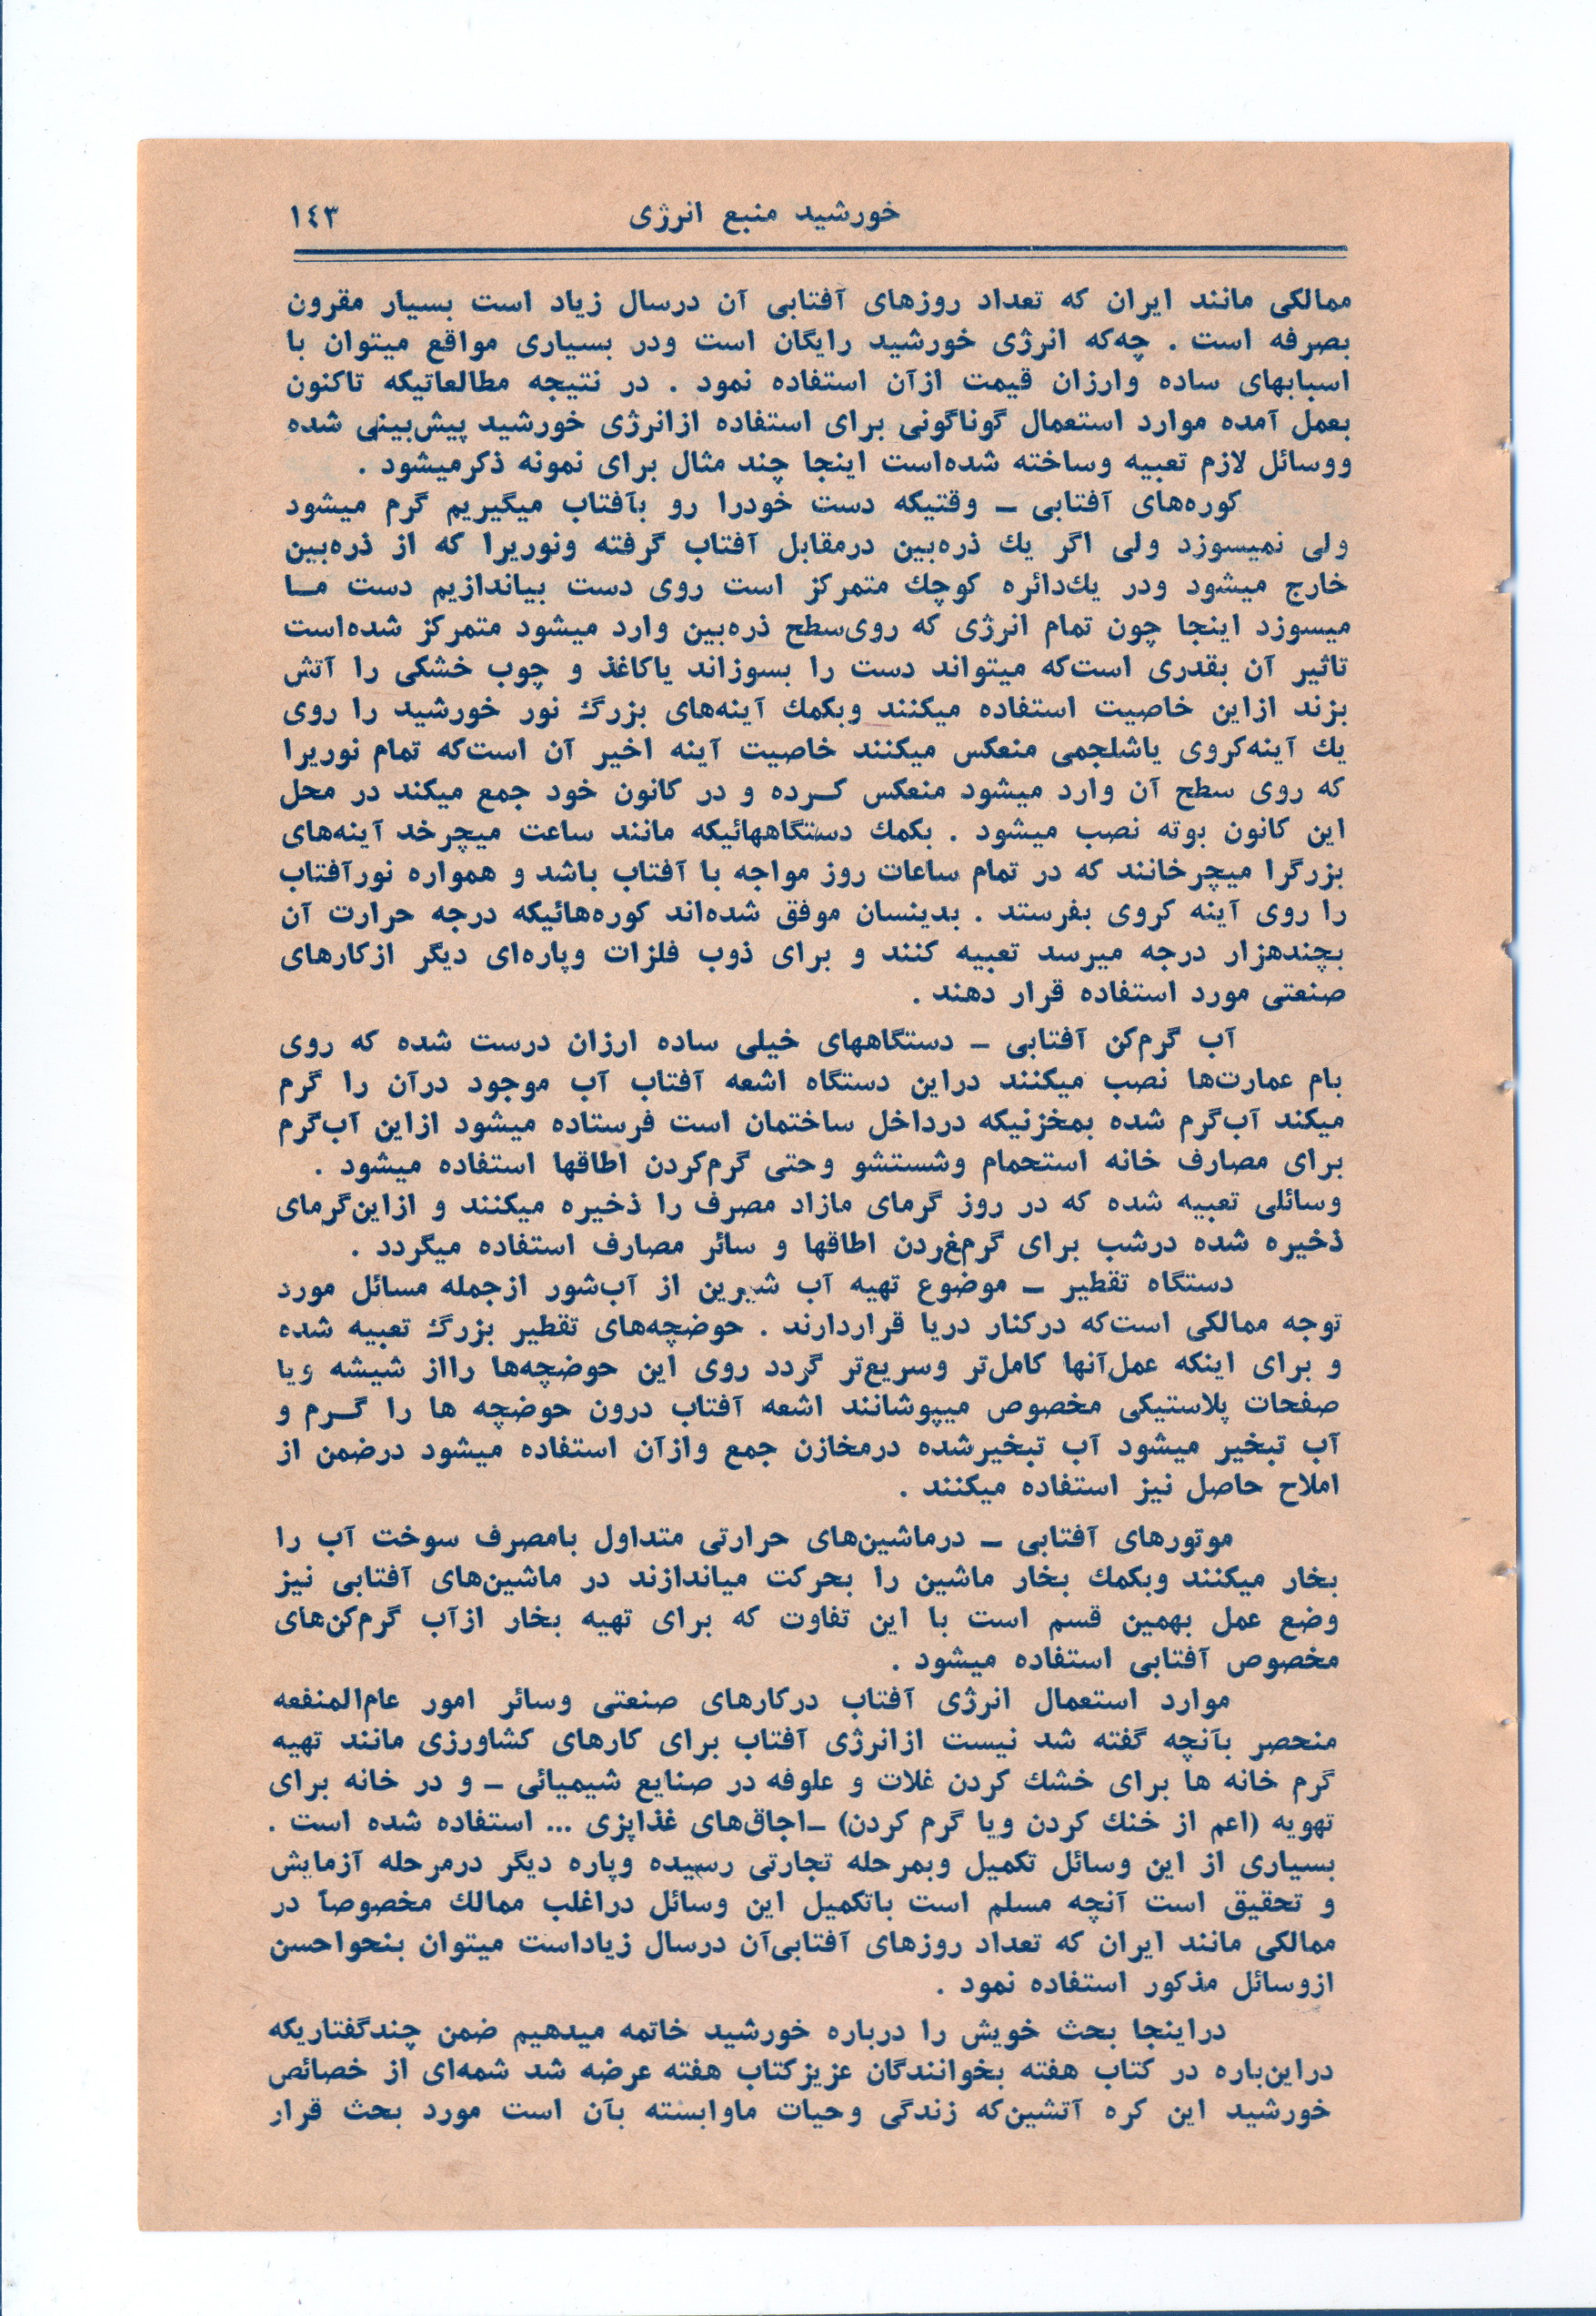 خورشید منبع انرژی ١٤٣
ممالکی مانند ایران که تعداد روزهای آفتابی آن درسال زیاد است بسیار مقرون
بصرفه است . چه‌که انرژی خورشید رایگان است ودر بسیاری مواقع میتوان با
اسبابهای ساده وارزان قیمت ازآن استفاده نمود . در نتیجه مطالعاتیکه تاکنون
بعمل آمده موارد استعمال گوناگونی برای استفاده ازانرژی خورشید پیش‌بینی شده
ووسائل لازم تعبیه وساخته شده‌است اینجا چند مثال برای نمونه ذکرمیشود .
کوره‌های آفتابی – وقتیکه دست خودرا رو بآفتاب میگیریم گرم میشود
ولی نمیسوزد ولی اگر یك ذره‌بین درمقابل آفتاب گرفته ونوریرا که از ذره‌بین
خارج میشود ودر یك‌دائره کوچك متمرکز است روی دست بیاندازیم دست مـا
میسوزد اینجا چون تمام انرژی که روی‌سطح ذره‌بین وارد میشود متمرکز شده‌است
تاثیر آن بقدری است‌که میتواند دست را بسوزاند یاکاغذ و چوب خشکی را آتش
بزند ازاین خاصیت استفاده میکنند وبکمك آینه‌های بزرگ نور خورشید را روی
یك آینه‌کروی یاشلجمی منعکس میکنند خاصیت آینه اخیر آن است‌که تمام نوریرا
که روی سطح آن وارد میشود منعکس کـرده و در کانون خود جمع میکند در محل
این کانون بوته نصب میشود . بکمك دستگاههائیکه مانند ساعت میچرخد آینه‌های
بزرگرا میچرخانند که در تمام ساعات روز مواجه با آفتاب باشد و همواره نورآفتاب
را روی آینه کروی بفرستد . بدینسان موفق شده‌اند کوره‌هائیکه درجه حرارت آن
بچندهزار درجه میرسد تعبیه کنند و برای ذوب فلزات وپاره‌ای دیگر ازکارهای
صنعتی مورد استفاده قرار دهند .
آب گرم‌کن آفتابی – دستگاههای خیلی ساده ارزان درست شده که روی
بام عمارت‌ها نصب میکنند دراین دستگاه اشعه آفتاب آب موجود درآن را گرم
میکند آب‌گرم شده بمخزنیکه درداخل ساختمان است فرستاده میشود ازاین آب‌گرم
برای مصارف خانه استحمام وشستشو وحتی گرم‌کردن اطاقها استفاده میشود .
وسائلی تعبیه شده که در روز گرمای مازاد مصرف را ذخیره میکنند و ازاین‌گرمای
ذخیره شده درشب برای گرم‌غردن اطاقها و سائر مصارف استفاده میگردد .
دستگاه تقطیر – موضوع تهیه آب شیرین از آب‌شور ازجمله مسائل مورد
توجه ممالکی است‌که درکنار دریا قراردارند . حوضچه‌های تقطیر بزرگ تعبیه شده
و برای اینکه عمل‌آنها کامل‌تر وسریع‌تر گردد روی این حوضچه‌ها رااز شیشه ویا
صفحات پلاستیکی مخصوص میپوشانند اشعه آفتاب درون حوضچه ها را گـرم و
آب تبخیر میشود آب تبخیرشده درمخازن جمع وازآن استفاده میشود درضمن از
املاح حاصل نیز استفاده میکنند .
موتورهای آفتابی – درماشین‌های حرارتی متداول بامصرف سوخت آب را
بخار میکنند وبکمك بخار ماشین را بحرکت میاندازند در ماشین‌های آفتابی نیز
وضع عمل بهمین قسم است با این تفاوت که برای تهیه بخار ازآب گرم‌کن‌های
مخصوص آفتابی استفاده میشود .
موارد استعمال انرژی آفتاب درکارهای صنعتی وسائر امور عام‌المنفعه
منحصر بآنچه گفته شد نیست ازانرژی آفتاب برای کارهای کشاورزی مانند تهیه
گرم خانه ها برای خشك کردن غلات و علوفه در صنایع شیمیائی – و در خانه برای
تهویه (اعم از خنك کردن ویا گرم کردن) –اجاق‌های غذاپزی ... استفاده شده است .
بسیاری از این وسائل تکمیل وبمرحله تجارتی رسیده وپاره دیگر درمرحله آزمایش
و تحقیق است آنچه مسلم است باتکمیل این وسائل دراغلب ممالك مخصوصاً در
ممالکی مانند ایران که تعداد روزهای آفتابی‌آن درسال زیاداست میتوان بنحواحسن
ازوسائل مذکور استفاده نمود .
دراینجا بحث خویش را درباره خورشید خاتمه میدهیم ضمن چندگفتاریکه
دراین‌باره در کتاب هفته بخوانندگان عزیزکتاب هفته عرضه شد شمه‌ای از خصائص
خورشید این کره آتشین‌که زندگی وحیات ماوابسته بآن است مورد بحث قرار